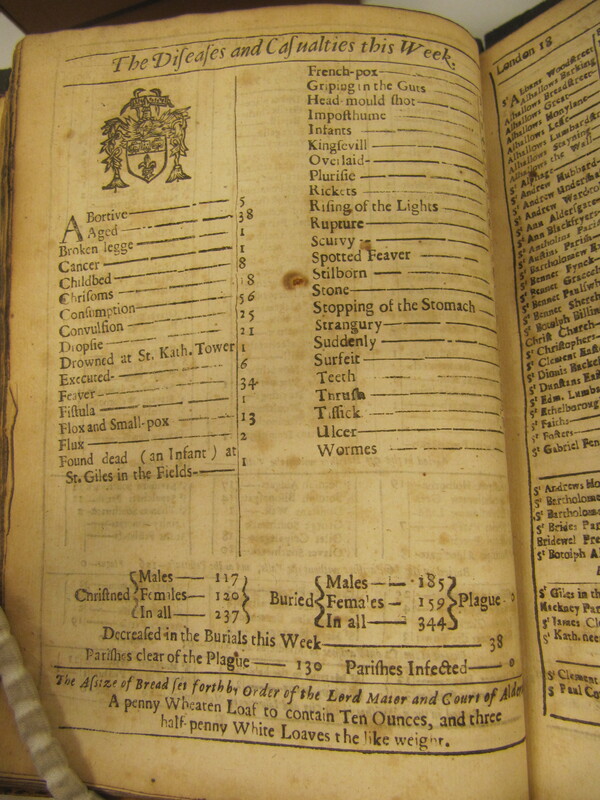 The Diſeaſes and Caſualties this Week.
Abortive 5
Aged 38
Broken legge 1
Cancer 1
Childbed 8
Chriſoms 18
Conſumption 56
Convulſion 25
Dropſie 21
Drowned at St. Kath. Tower 1
Executed 6
Feaver 34
Fiſtula 1
Flox and Small-pox 13
Flux 2
Found dead (an Infant) at
St. Giles in the Fields 1
French-pox
Griping in the Guts
Head-mould ſhot
Impoſthume
Infants
Kingſevill
Overlaid
Pluriſie
Rickets
Riſing of the Lights
Rupture
Scurvy
Spotted Feaver
Stilborn
Stone
Stopping of the Stomach
Strangury
Suddenly
Surfeit
Teeth
Thruſh
Tiſſick
Ulcer
Wormes
Chriſtned { Males 117 Females 120 In all 237 }
Buried { Males 185 Females 159 In all 344 } Plague 0
Decreaſed in the Burials this Week 38
Pariſhes clear of the Plague 130 Pariſhes Infected 0
The Aſſize of Bread ſet forth by Order of the Lord Maior and Court of
A penny Wheaten Loaf to contain Ten Ounces, and three
half-penny White Loaves the like weight.
London 18
St Albans Woodſtreet
Alhallows Barking
Alhallows Breadſtreet
Alhallows Great
Alhallows Honylane
Alhallows Leſſe
Alhallows Lumbardſt
Alhallows Stayning
Alhallows the Wall
St Alphage
St Andrew Hubbard
St Andrew Underſha
St Andrew Wardro
St Ann Alderſgate
St Ann Blackfryers
St Antholins Pariſ
St Auſtins Pariſh
St Bartholomew E
St Bennet Fynck
St Bennet Gracech
St Bennet Paulſwh
St Bennet Shereh
St Botolph Billin
Chriſt Church
St Chriſtophers
St Clement Eaſt
St Dionis Backch
St Dunſtans Eaſ
St Edm. Lumba
St Ethelboroug
St Faiths
St Foſters
St Gabriel Fen
St Andrews Ho
St Bartholome
St Bartholome
St Brides Par
Bridewel Pre
St Botolph Al
St Giles in th
Hackney Par
St James Cle
St Kath. nee
St Clement
St Paul Co